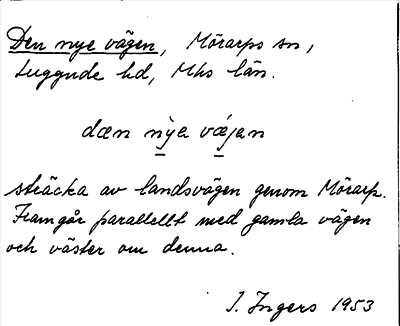 Den nye vägen, Mörarps sn,
Luggude hd, Mhs län.
dæn nỳa vǽjan
sträcka av landsvägen genom Mörarp.
Framgår parallellt med gamla vägen
och väster om denna.
I. Ingers 1953